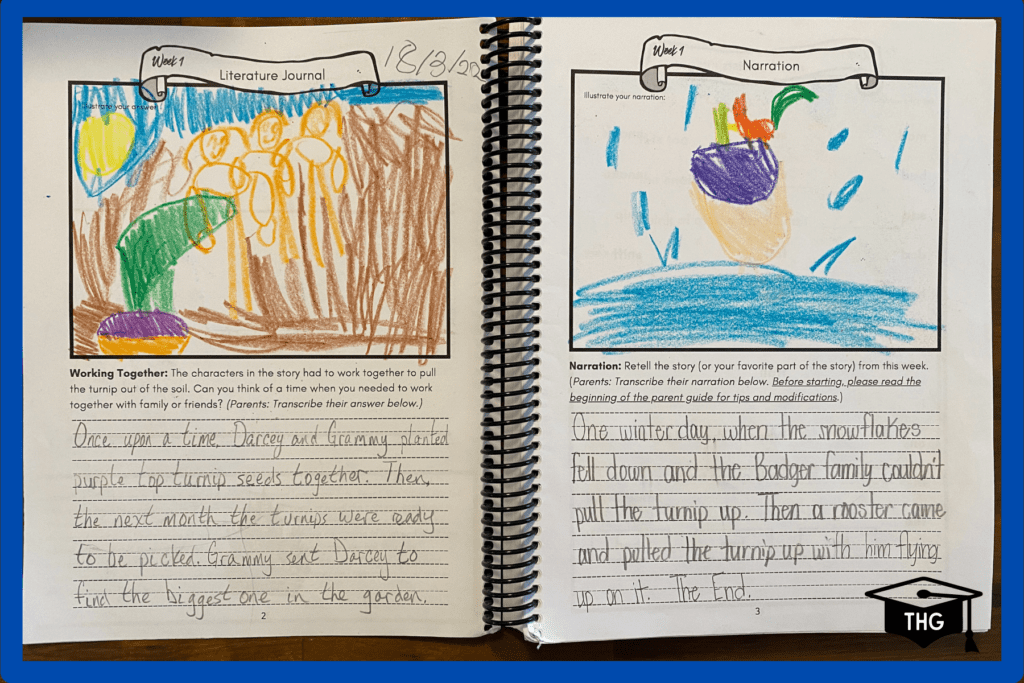 Week 1
Literature Journal
18/3/20
Illustrate your answer:
Working Together: The characters in the story had to work together to pull
the turnip out of the soil. Can you think of a time when you needed to work
together with family or friends? (Parents: Transcribe their answer below.)
Once upon a time, Darcey and Grammy planted
purple top turnip seeds together. Then,
the next month the turnips were ready
to be picked. Grammy sent Darcey to
find the biggest one in the garden.
2
Week 1
Narration
Illustrate your narration:
Narration: Retell the story (or your favorite part of the story) from this week.
(Parents: Transcribe their narration below. Before starting, please read the
beginning of the parent guide for tips and modifications.)
One winter day, when the snowflakes
fell down and the Badger family couldn't
pull the turnip up. Then a rooster came
and pulled the turnip up with him flying
up on it. The End.
3
THG